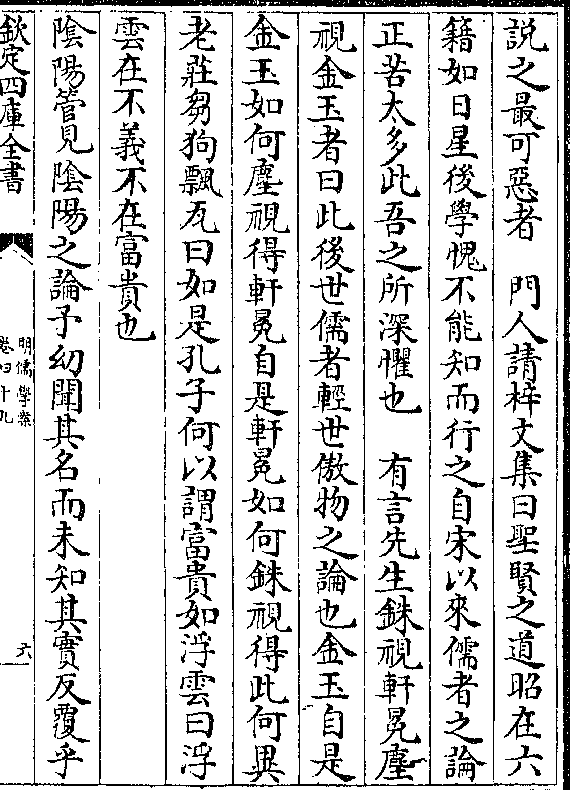 説之最可惡者　門人請梓文集曰聖賢之道昭在六
籍如日星後學愧不能知而行之自宋以來儒者之論
正苦太多此吾之所深懼也　有言先生銖視軒冕塵
視金玉者曰此後世儒者輕世傲物之論也金玉自是
金玉如何塵視得軒冕自是軒冕如何銖視得此何異
老莊芻狗飄瓦曰如是孔子何以謂富貴如浮雲曰浮
雲在不義不在富貴也
陰陽管見陰陽之論予幼聞其名而未知其實反覆乎
欽定四庫全書
明儒學案
卷四十九
六